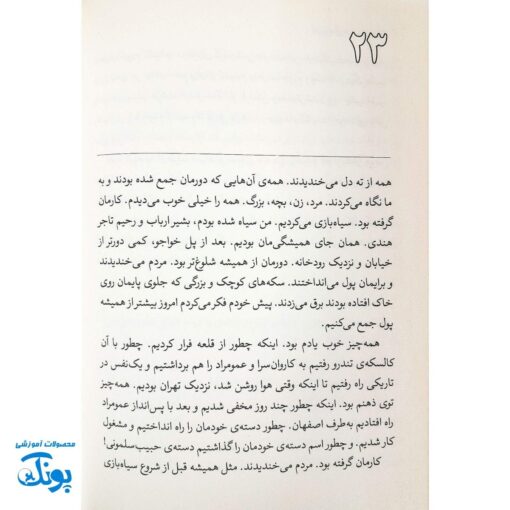 ۲۳
همه از ته دل می‌خندیدند. همه‌ی آن‌هایی که دورمان جمع شده بودند و به
ما نگاه می‌کردند. مرد، زن، بچه، بزرگ. همه را خیلی خوب می‌دیدم. کارمان
گرفته بود. سیاه‌بازی می‌کردیم. من سیاه شده بودم، بشیر ارباب و رحیم تاجر
هندی. همان جای همیشگی‌مان بودیم. بعد از پل خواجو، کمی دورتر از
خیابان و نزدیک رودخانه. دورمان از همیشه شلوغ‌تر بود. مردم می‌خندیدند
و برایمان پول می‌انداختند. سکه‌های کوچک و بزرگی که جلوی پایمان روی
خاک افتاده بودند برق می‌زدند. پیش خودم فکر می‌کردم امروز بیشتر از همیشه
پول جمع می‌کنیم.
همه‌چیز خوب یادم بود. اینکه چطور از قلعه فرار کردیم. چطور با آن
کالسکه‌ی تندرو رفتیم به کاروان‌سرا و عمومراد را هم برداشتیم و یک‌نفس در
تاریکی راه رفتیم تا اینکه وقتی هوا روشن شد، نزدیک تهران بودیم. همه‌چیز
توی ذهنم بود. اینکه چطور چند روز مخفی شدیم و بعد با پس‌انداز عمومراد
راه افتادیم به‌طرف اصفهان. چطور دسته‌ی خودمان را راه انداختیم و مشغول
کار شدیم. و چطور اسم دسته‌ی خودمان را گذاشتیم دسته‌ی حبیب‌سلمونی!
کارمان گرفته بود. مردم می‌خندیدند. مثل همیشه قبل از شروع سیاه‌بازی
محصولات آموزشی
پونک